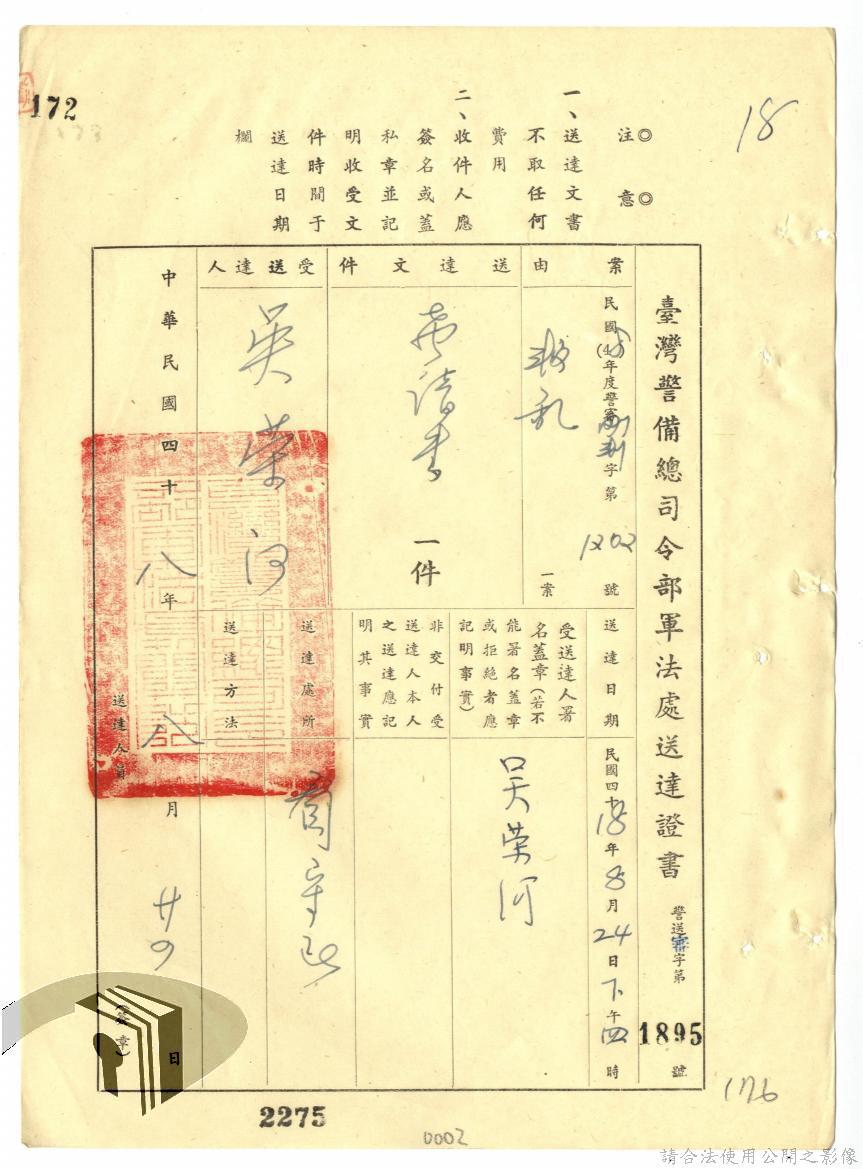 172
18
◎注意◎
一、送達文書
不取任何
費用
二、收件人應
簽名或蓋
私章並記
明收受文
件時間于
送達日期
欄
臺灣警備總司令部軍法處送達證書
警送審字第
1895
號
案由
民國(4)年度警審字第
1202
號
叛乱
一案
送達文件
聲請書
一件
受送達人
吳荣河
送達日期
民國四十18年8月24日下午四時
受送達人署
名蓋章(若不
能署名蓋章
或拒絕者應
記明事實)
吴荣河
非交付受
送達人本人
之送達應記
明其事實
送達處所
看守所
送達方法
中華民國四十八年八月廿四日
送達人員
(簽章)
2275
0002
176
請合法使用公開之影像